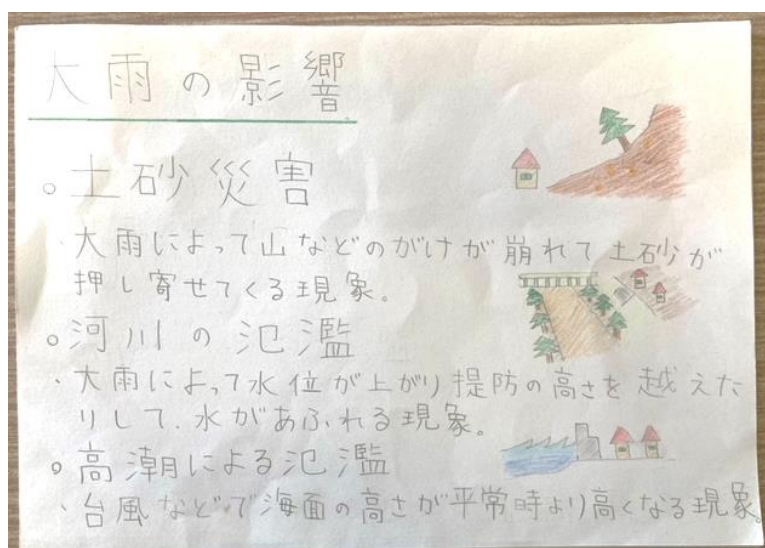 大雨の影響
。土砂災害
・大雨によって山などのがけが崩れて土砂が
押し寄せてくる現象。
。河川の氾濫
・大雨によって水位が上がり提防の高さを越えた
りして、水があふれる現象。
。高潮による氾濫
・台風などで海面の高さが平常時より高くなる現象。